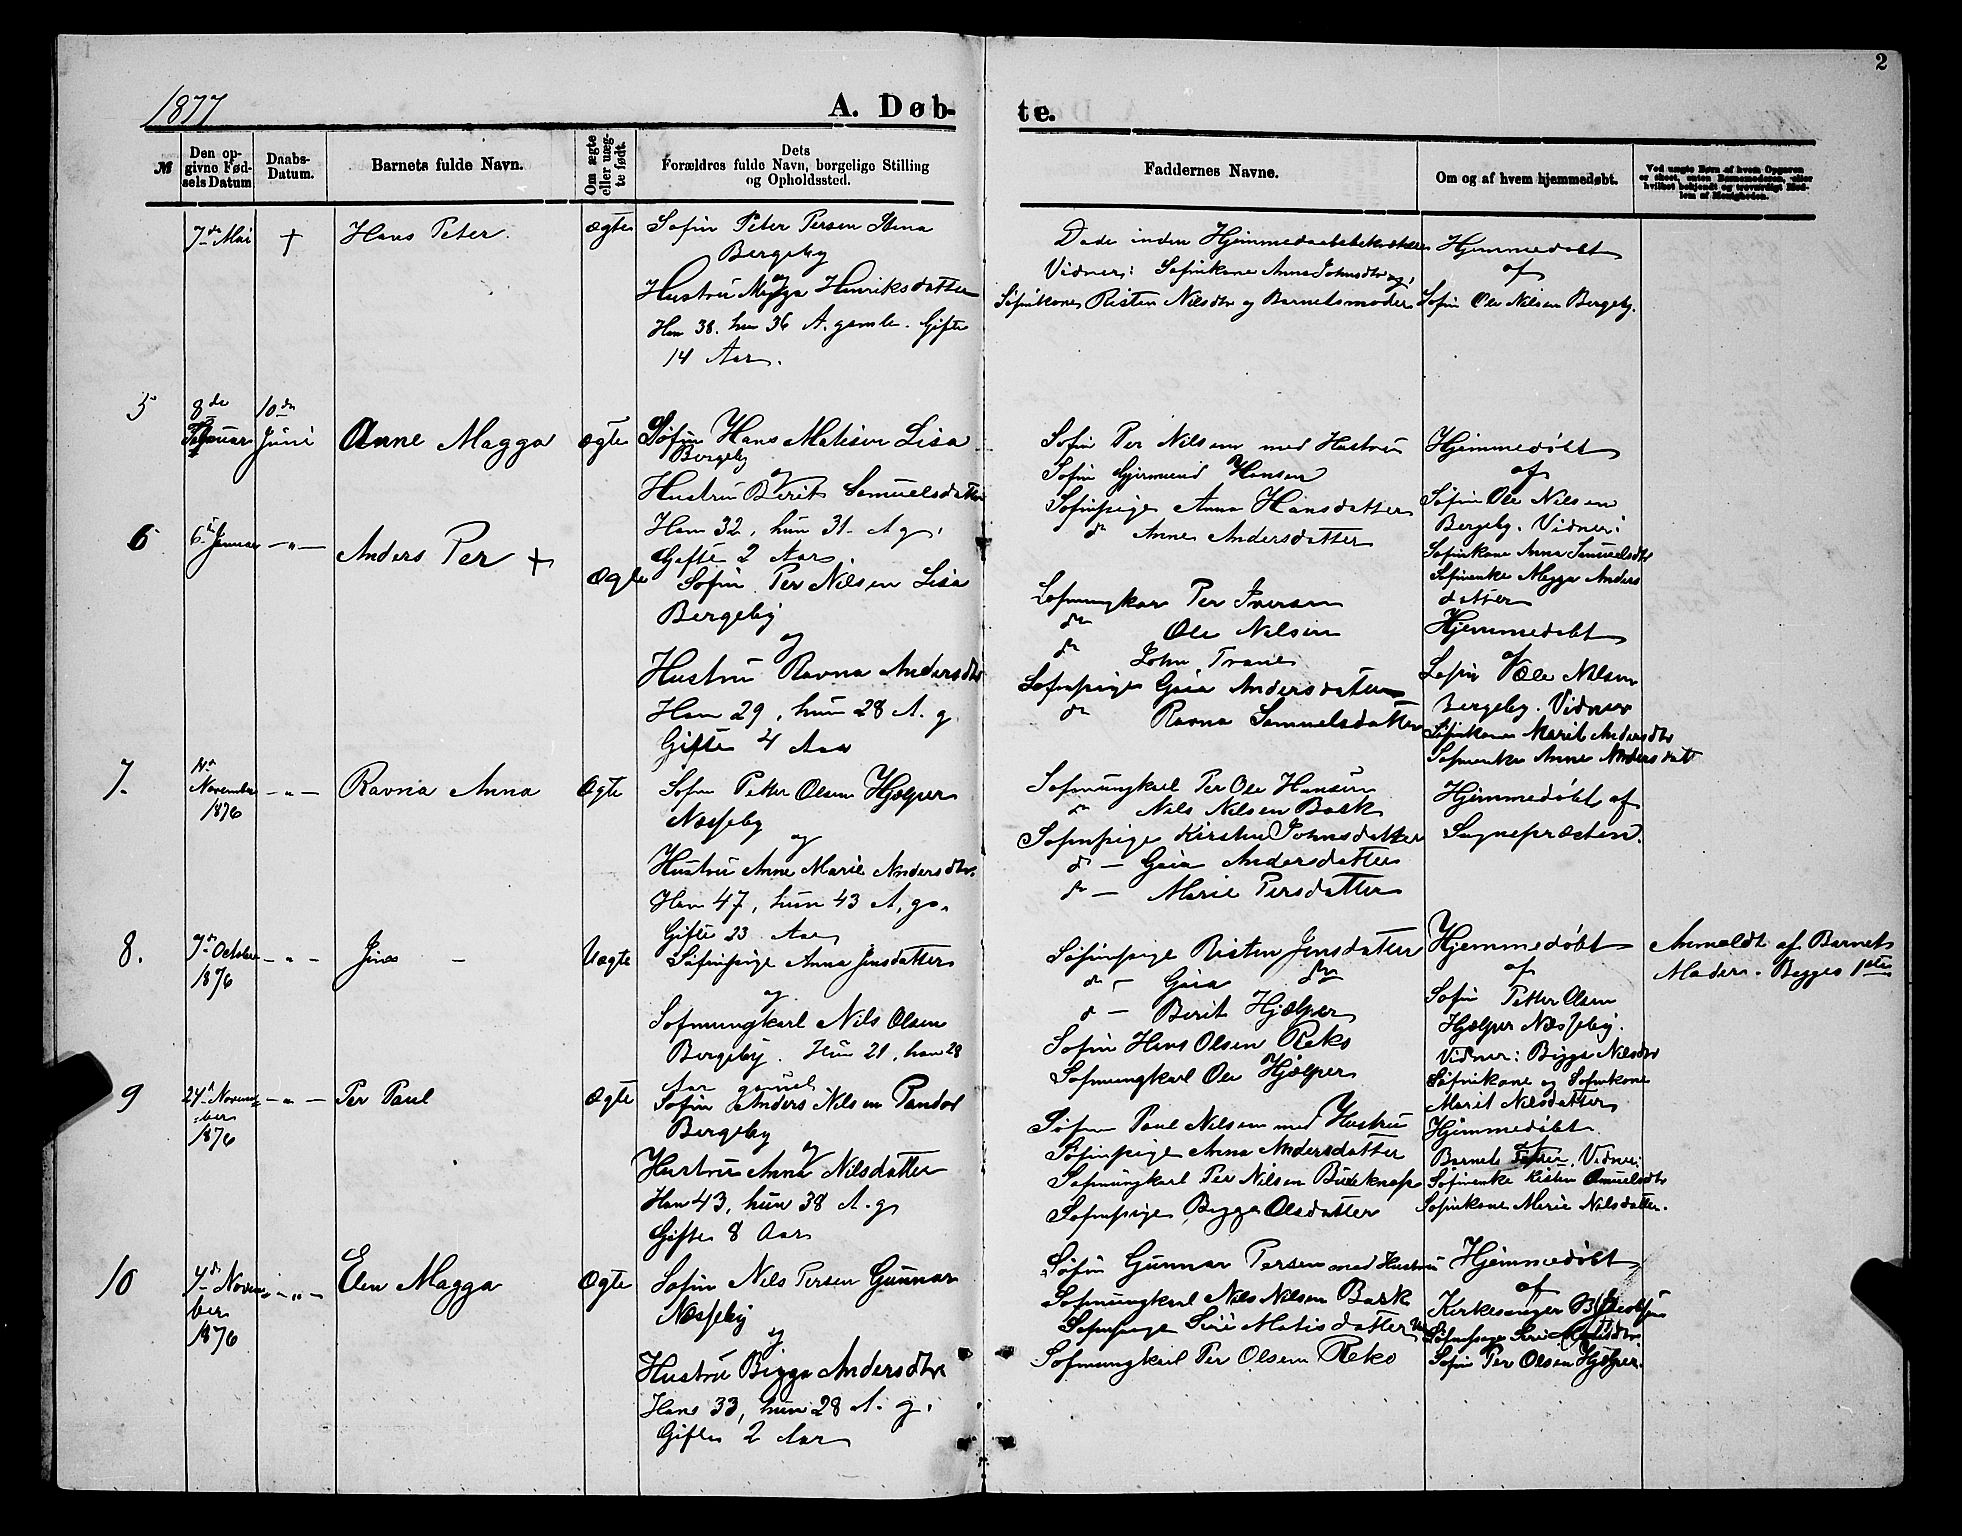 2
1877
A. Døb-
te.
№
Den op-
givne Fød-
sels Datum
Daabs-
Datum.
Barnets fulde Navn.
Om ægte
eller uæg-
te født.
Dets
Forældres fulde Navn, borgelige Stilling
og Opholdssted.
Faddernes Navne.
Om og af hvem hjemmedøbt.
Ved uægte Børn af hvem Opgaven
er skeet, enten Barnemoderen, eller
hvilket bekjendt og troværdigt Med-
lem af Menigheden.
7de Mai
+
Hans Peter.
ægte
Søfin Peter Persen Stena
Bergeby
og
Hustru Magga Henriksdatter
Han 38. hun 36 A. gamle. Gifte
14 Aar.
Døde inden
Vidner: Søfinkone Anna Johnsdtr og
Søfinkone Risten Nilsdtr og Barnets moder
Hjemmedøbt
af
Søfin Ole Nilsen Bergeby.
5
8de
Februar
10de
Juni
Anne Magga
ægte
Søfin Hans Matisen Lisa
Bergeby
og
Hustru Berit Samuelsdatter
Han 32, hun 31. A g.
Gifte 2 Aar
Søfin Per Nilsen med Hustru
Søfin Gjermund Hansen
Søfinpige Anna Hansdatter
do Anne Andersdatter
Hjemmedøbt
af
Søfin Ole Nilsen
Bergeby. Vidner:
Søfinkone Anna Samuelsdtr
Søfinenke Magga Anders
datter
6
6te Januar
-"-
Anders Per +
Ægte
Søfin Per Nilsen Lisa
Bergeby
og
Hustru Ravna Andersdtr
Han 29, hun 28 A. g.
Gifte 4 Aar
Søfinungkar Per Iversen
do Ole Nilsen
do John Trane
Søfinpige Gaia Andersdatter
do Ravna Samuelsdatter
Hjemmedøbt
af
Søfin Ole Nilsen
Bergeby. Vidner
Søfinkone Marit Andersdtr
Søfinenke Anne Andersdatt
7.
November
1876
-"-
Ravna Anna
Ægte
Søfin Petter Olsen Hjelper
Næsseby
og
Hustru Anne Marie Andersdtr.
Han 47, hun 43 A, g.
Gifte 23 Aar
Søfinungkarl Per Ole Hansen
do Nils Nilsen Bask
Søfinpige Kirsten Johnsdatter
do - Gaia Andersdatter
do - Marie Persdatter
Hjemmedøbt af
Sognepræsten.
8.
7de October
1876
-"-
Uægte
Søfinpige Anna Jensdatter
og
Søfinungkarl Nils Olsen
Bergeby. Hun 21, han 28
Aar gamel
Søfinpige Risten Jensdatter
do - Gaia do
do - Berit Hjelper
Søfin Hans Olsen Reko
Søfinungkarl Ole Hjelper
Hjemmedøbt
af
Søfin Petter Olsen
Hjelper Næsseby.
Vidner: Bigga Nilsdtr
Søfinkone og Søfinkone
Marit Nilsdatter
Anmeldt af Barnets
Moder. Begges 1ste
9
24de Novem-
ber
1876
-"-
Per Paul
Ægte
Søfin Anders Nilsen Pandor
Bergeby
og
Hustru Anna Nilsdatter
Han 43, hun 38 A. g
Gifte 8 Aar
Søfin Paul Nilsen med Hustru
Søfinpige Anna Andersdatter
Søfinungkarl Per Nilsen
Søfinpige Bigga Olsdatter
Hjemmedøbt
af
Barnets Fader. Vidner:
Søfinenke Kisten Amuelsdtr
Søfinkone Marie Nilsdatter.
10
7de Novem
ber
1876
-"-
Elen Magga
Ægte
Søfin Nils Persen Gunnar
Næsseby
og
Hustru Bigga Andersdtr
Han 33, hun 28 A. g.
Gifte 2 Aar
Søfin Gunnar Persen med Hustru
Søfinungkarl Nils Nilsen Bask
Søfinpige Siri Matisdatter
Søfinungkarl Per Olsen Reko
Hjemmedøbt
af
Kirkesanger
Søfinpige Siri Matisdtr
Søfin Per Olsen Hjelper.